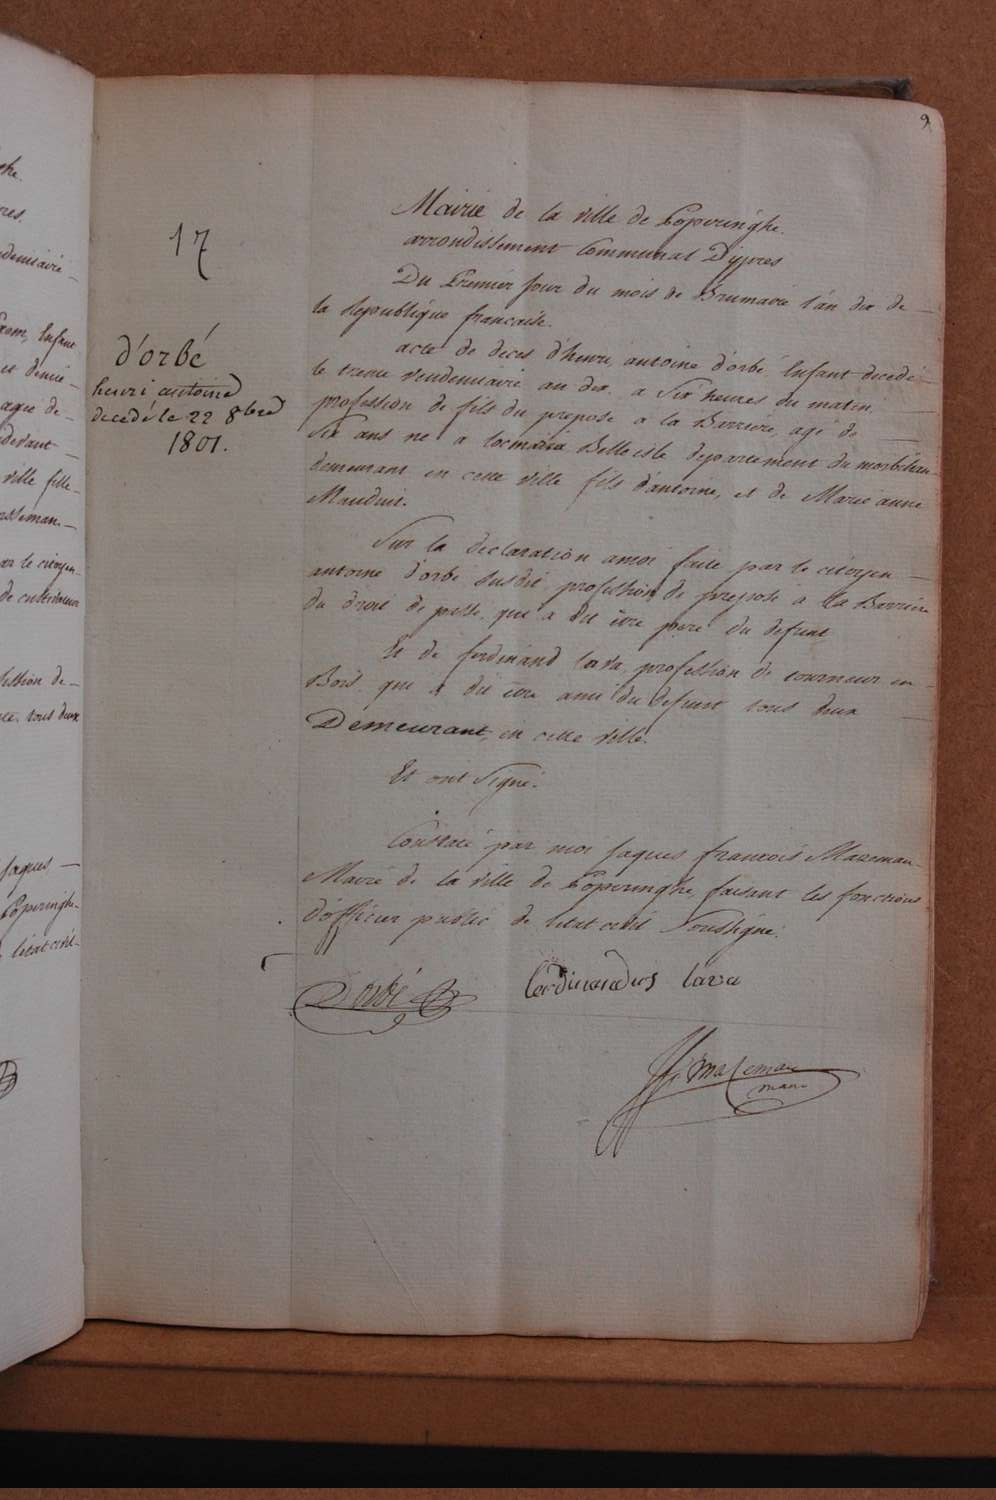 9
17
d'orbé
henri antoine
decedé le 22 8bre
1801.
Mairie de la ville de Poperinghe.
arrondissement Communal D'ypres
Du Premier jour du mois de Brumaire l'an dix de
la Republique francaise.
acte de deces d'henri, antoine d'orbé, Enfant decedé
le trente vendemiaire an dix a Six heures du matin,
profession de fils du preposé a la Barriere, agé de
Six ans né a locmaria Belle isle departement du morbihan
demeurant en cette ville fils d'antoine, et de Marie anne
Mauduit.
Sur la declaration amoi faite par le citoyen
antoine d'orbé Susdit profession de preposé a la Barriere
du droit de passe, qui a dit être pere du defunt
Et de ferdinand lava, profession de tourneur en
Bois qui a dit être ami du defunt tous deux
Demeurant, en cette ville.
Et ont Signé.
Constaté par moi Jaques francois Mazeman
Maire de la ville de Poperinghe, faisant les fonctions
d'officier public de l'etat civil Soussigné.
Dorbé
ferdinandus lava
Mazeman
maire
ghe.
res.
demiaire
Enfant
et demie
agée de
devant
ville fille
sseman
par le citoyen
de cultivateur
fession de
tous deux
Jaques
Poperinghe
l'etat civil